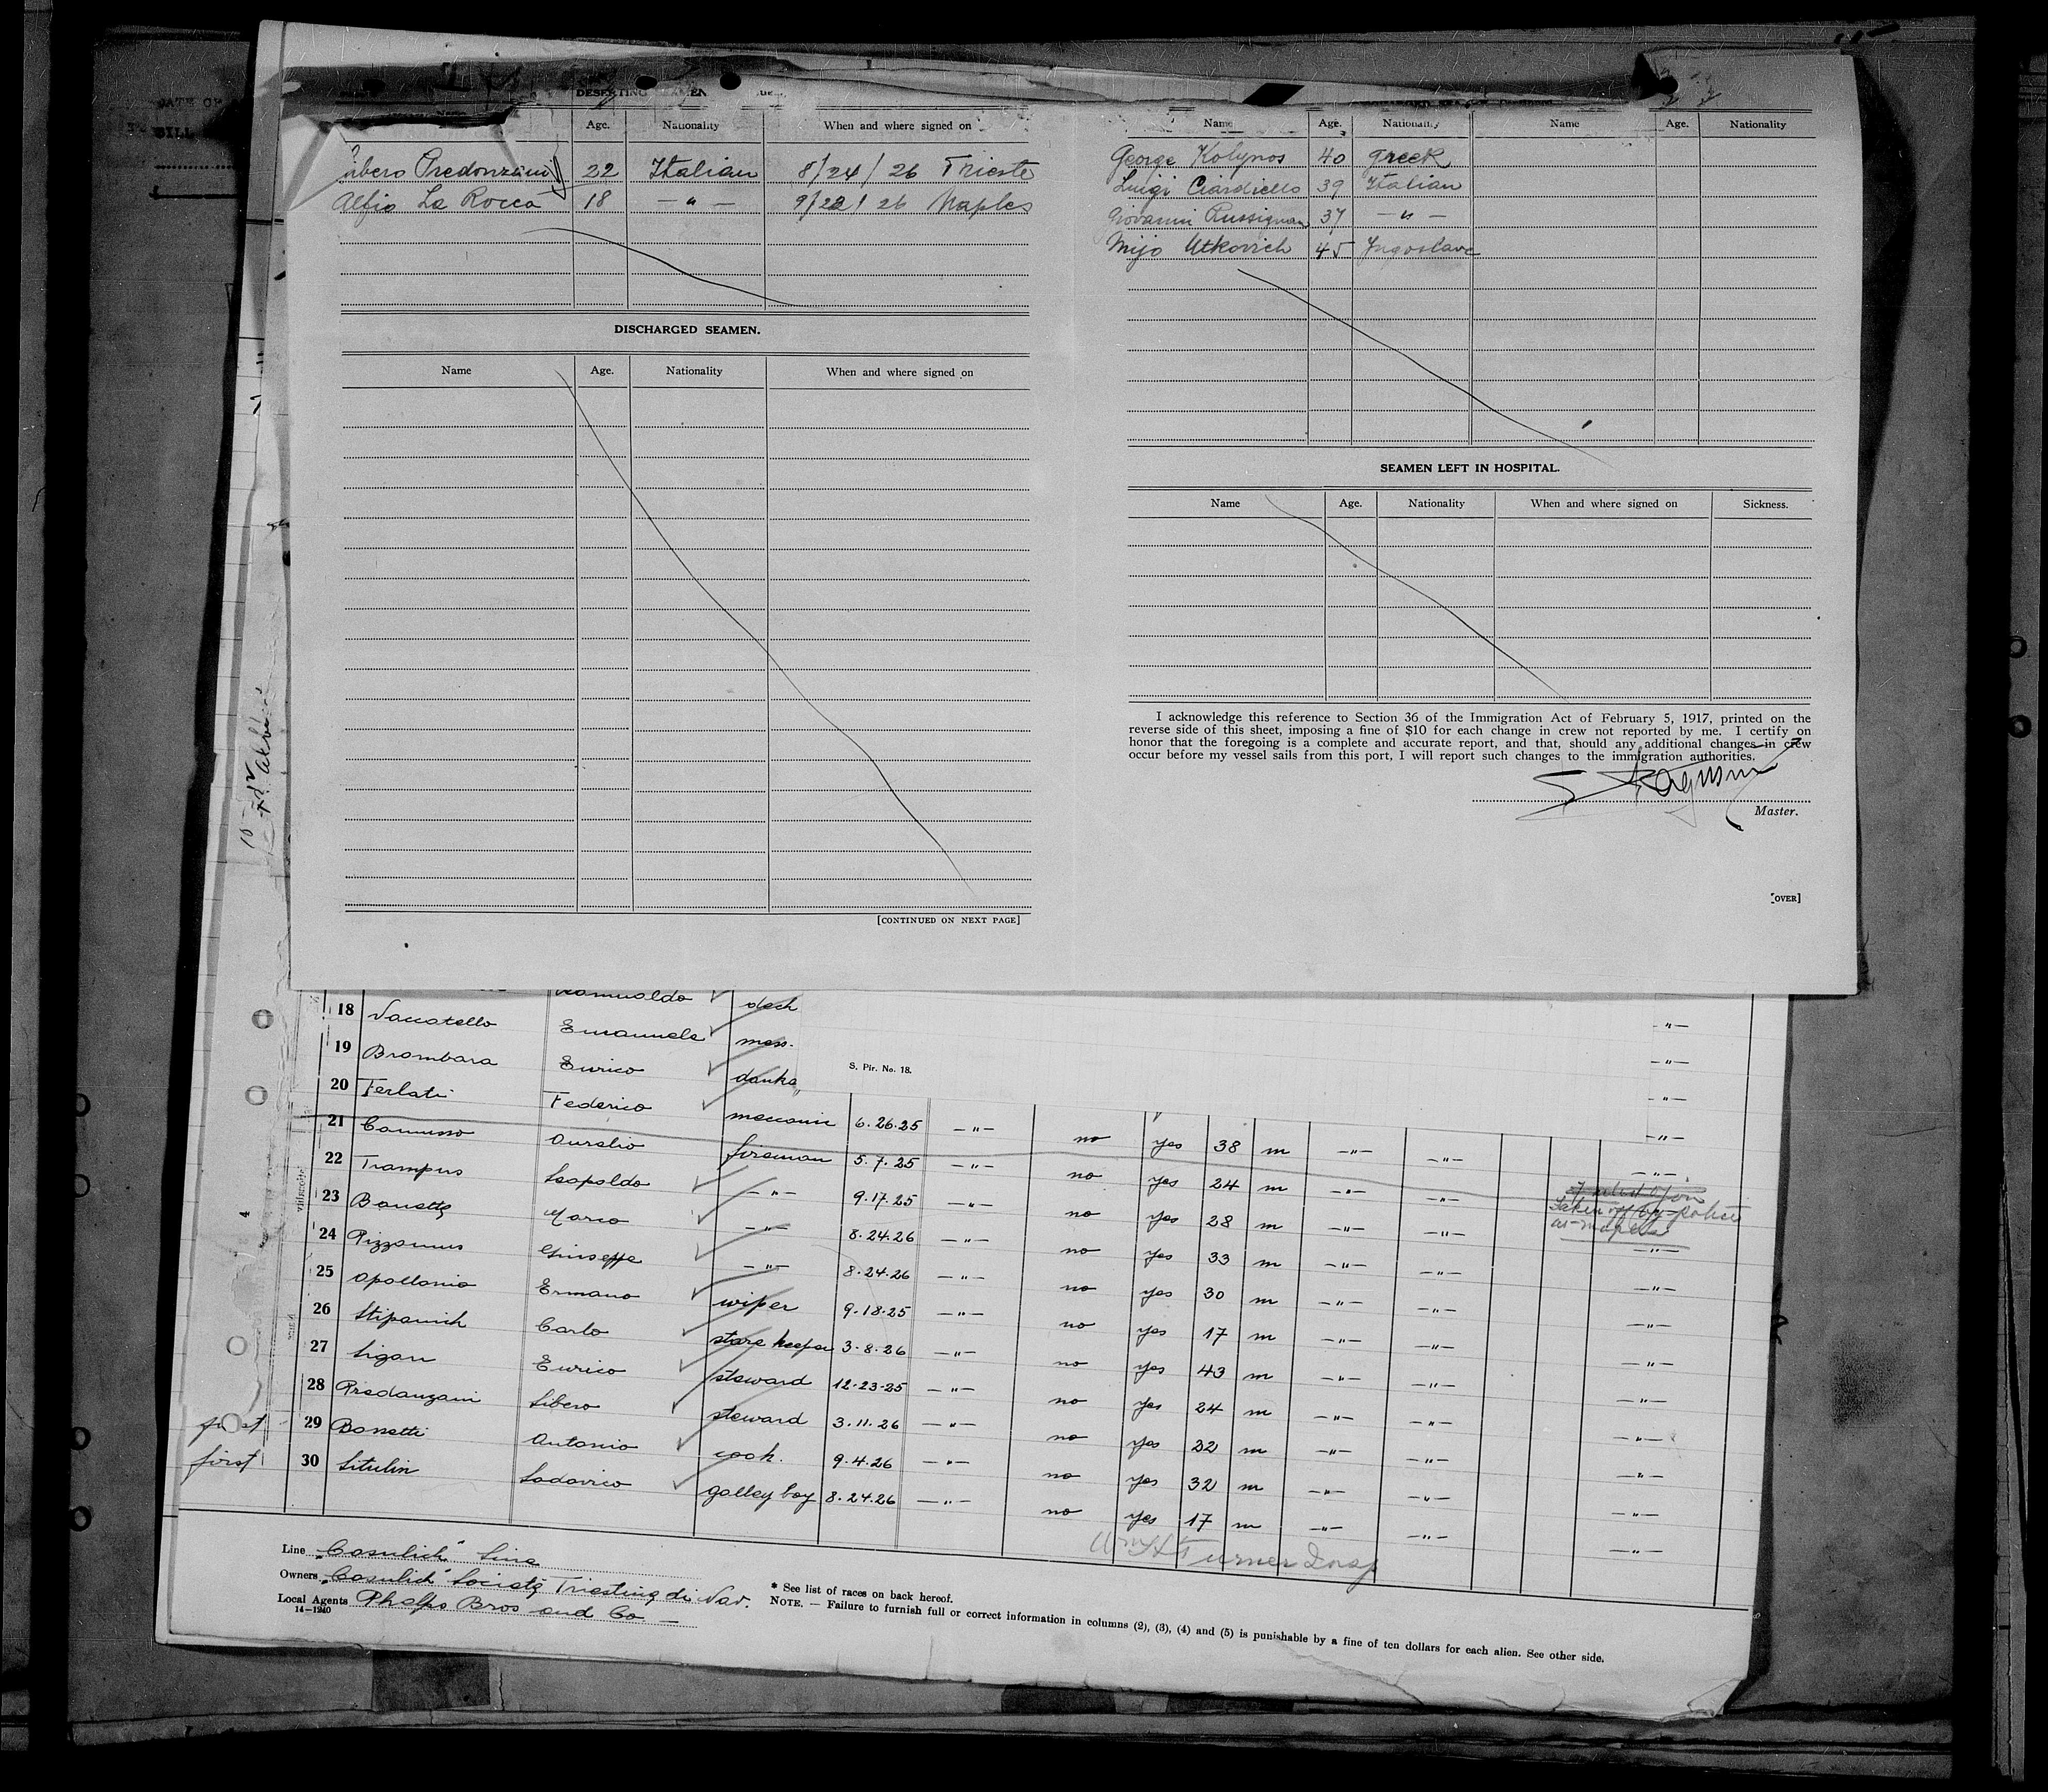 DATE OF
BILL
DESERTING SEAMEN
Name Age. Nationality When and where signed on
Libero Predonzani 22 Italian 8/24/26 Trieste
Alfio La Rocca 18 — " — 9/22/26 Naples
DISCHARGED SEAMEN.
Name Age. Nationality When and where signed on
[CONTINUED ON NEXT PAGE]
Name Age. Nationality Name Age. Nationality
George Kolynos 40 Greek
Luigi Ciardiello 39 Italian
Giovanni Russignan 37 — " —
Mijo Utkovich 45 Jugoslave
SEAMEN LEFT IN HOSPITAL.
Name Age. Nationality When and where signed on Sickness.
I acknowledge this reference to Section 36 of the Immigration Act of February 5, 1917, printed on the
reverse side of this sheet, imposing a fine of $10 for each change in crew not reported by me. I certify on
honor that the foregoing is a complete and accurate report, and that, should any additional changes in crew
occur before my vessel sails from this port, I will report such changes to the immigration authorities.
Master.
[OVER]
Romualdo deck
18 Vaccatello Emanuele mess. — " —
19 Brombara Enrico — " —
S. Pir. No. 18.
20 Ferlati Federico meccanic 6.26.25 — " — no yes 38 m — " — — " — — " —
21 Camusso Aurelio fireman 5.7.25 — " — no yes 24 m — " — — " — — " —
22 Trampus Leopoldo — " — 9.17.25 — " — no yes 28 m — " — — " —
Taken off by police
at Naples
23 Bonetta Marco — " — 8.24.26 — " — no yes 33 m — " — — " — — " —
24 Pizzamus Giuseppe — " — 8.24.26 — " — no yes 30 m — " — — " — — " —
25 Apollonio Ermano wiper 9.18.25 — " — no yes 17 m — " — — " — — " —
26 Stipanich Carlo store keeper 3.8.26 — " — no yes 43 m — " — — " — — " —
27 Sigon Enrico steward 12-23-25 — " — no yes 24 m — " — — " — — " —
28 Predanzani Libero steward 3.11.26 — " — no yes 22 m — " — — " — — " —
first 29 Bonetti Antonio cook. 9.4.26 — " — no yes 32 m — " — — " — — " —
first 30 Situlin Lodovico galley boy 8.24.26 — " — no yes 17 m — " — — " — — " —
Wm H Turner Insp
Line „Cosulich" Line
Owners „Cosulich" Società Triestina di Nav.
Local Agents Phelps Bros and Co —
14—1240
* See list of races on back hereof.
NOTE. — Failure to furnish full or correct information in columns (2), (3), (4) and (5) is punishable by a fine of ten dollars for each alien. See other side.